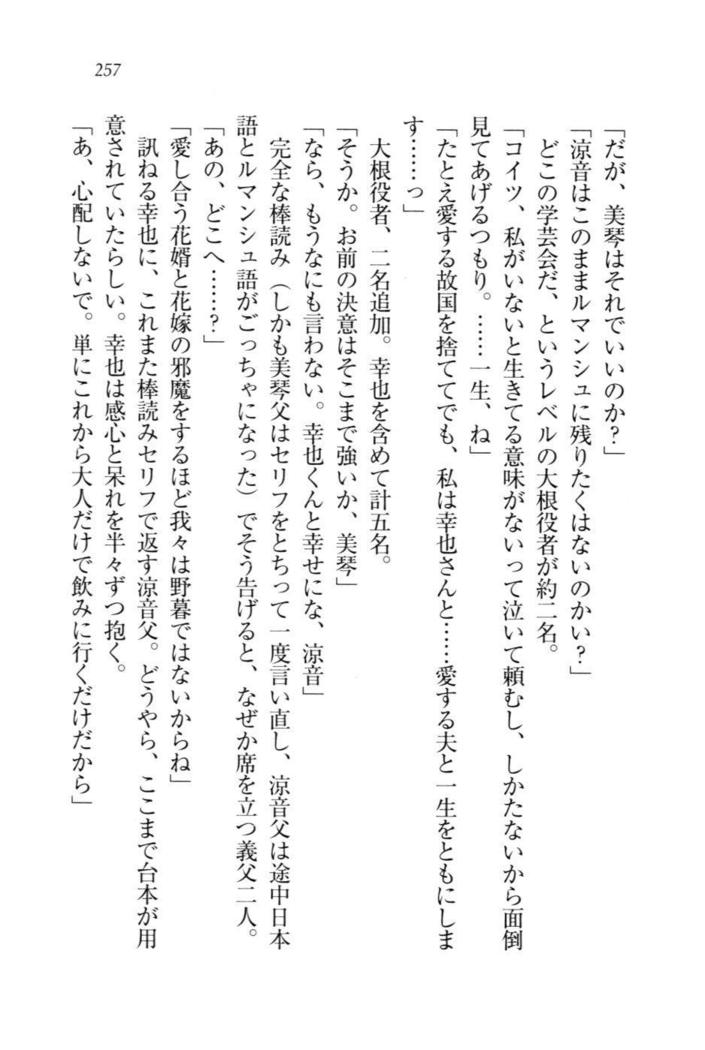 257
「だが、美琴はそれでいいのか?」
「涼音はこのままルマンシュに残りたくはないのかい?」
どこの学芸会だ、というレベルの大根役者が約二名。
「コイツ、私がいないと生きてる意味がないって泣いて頼むし、しかたないから面倒
見てあげるつもり。……一生、ね」
「たとえ愛する故国を捨ててでも、私は幸也さんと……愛する夫と一生をともにしま
す……っ」
大根役者、二名追加。幸也を含めて計五名。
「そうか。お前の決意はそこまで強いか、美琴」
「なら、もうなにも言わない。幸也くんと幸せにな、涼音」
完全な棒読み（しかも美琴父はセリフをとちって一度言い直し、涼音父は途中日本
語とルマンシュ語がごっちゃになった）でそう告げると、なぜか席を立つ義父二人。
「あの、どこへ……?」
「愛し合う花婿と花嫁の邪魔をするほど我々は野暮ではないからね」
訊ねる幸也に、これまた棒読みセリフで返す涼音父。どうやら、ここまで台本が用
意されていたらしい。幸也は感心と呆れを半々ずつ抱く。
「あ、心配しないで。単にこれから大人だけで飲みに行くだけだから」